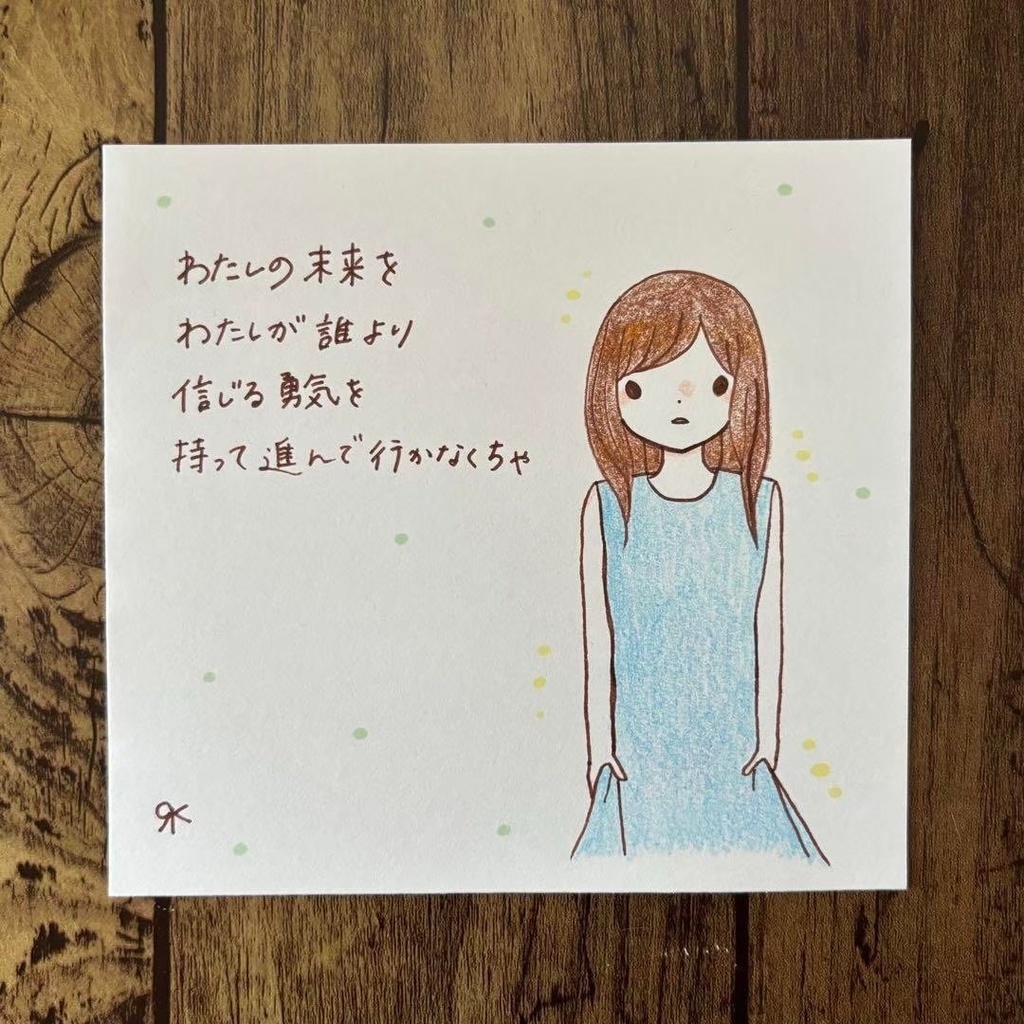 わたしの未来を
わたしが誰より
信じる勇気を
持って進んで行かなくちゃ